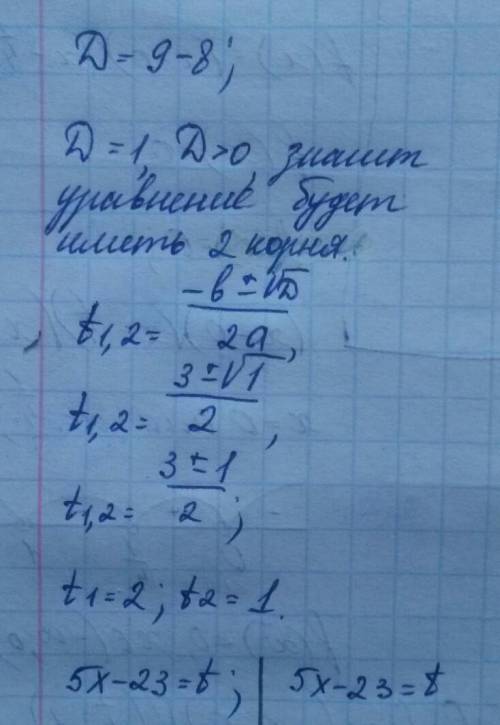 D = 9 - 8;
D = 1, D > 0, значит
уравнение будет
иметь 2 корня.
t1,2 = (-b ± √D) / 2a,
t1,2 = (3 ± √1) / 2,
t1,2 = (3 ± 1) / 2;
t1 = 2; t2 = 1.
5x - 23 = t; | 5x - 23 = t